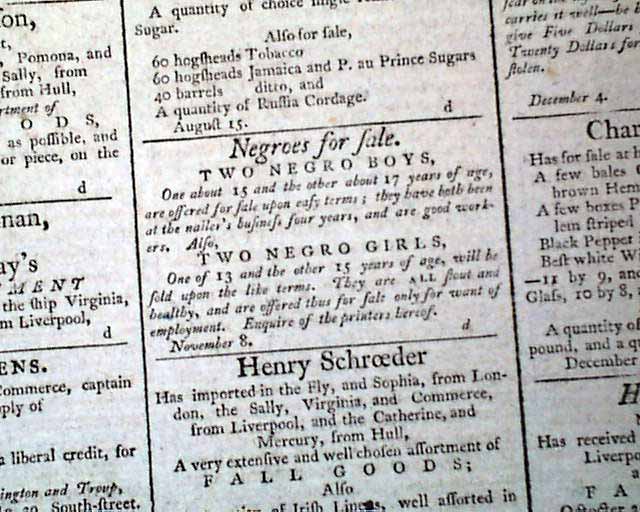 son,
Pomona, and
Sally, from
from Hull,
rtment of
O D S,
as possible, and
or piece, on the
d
nan,
ay's
M E N T
the ship Virginia,
m Liverpool,
d
ENS.
Commerce, captain
pply of
a liberal credit, for
ington and Troup,
South-street.
A quantity of choice
Sugar.
Also for sale,
60 hogsheads Tobacco
60 hogsheads Jamaica and P. au Prince Sugars
40 barrels ditto, and
A quantity of Russia Cordage.
August 15. d
Negroes for sale.
TWO NEGRO BOYS,
One about 15 and the other about 17 years of age,
are offered for sale upon easy terms; they have both been
at the nailer's business four years, and are good work-
ers. Also,
TWO NEGRO GIRLS,
One of 13 and the other 15 years of age, will be
sold upon the like terms. They are ALL stout and
healthy, and are offered thus for sale only for want of
employment. Enquire of the printers hereof.
November 8. d
Henry Schrœder
Has imported in the Fly, and Sophia, from Lon-
don, the Sally, Virginia, and Commerce,
from Liverpool, and the Catherine, and
Mercury, from Hull,
A very extensive and well chosen assortment of
F A L L G O O D S;
Also
of Irish Linens, well assorted in
carries it well—be
give Five Dollars
Twenty Dollars for
stolen.
December 4.
Char
Has for sale at h
A few bales
brown Hem
A few boxes P
lem striped
Black Pepper
Best white Wi
—11 by 9, an
Glass, 10 by 8,
A quantity o
pound, and a qu
December
H
Has received
Liverpo
a
F A
October 2